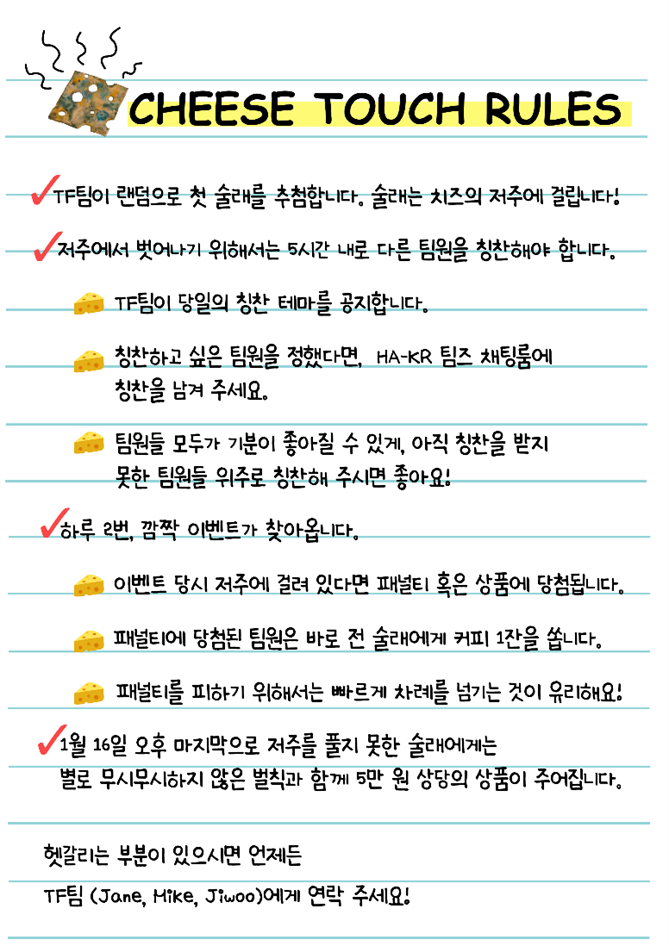 CHEESE TOUCH RULES
TF팀이 랜덤으로 첫 술래를 추첨합니다. 술래는 치즈의 저주에 걸립니다!
저주에서 벗어나기 위해서는 5시간 내로 다른 팀원을 칭찬해야 합니다.
TF팀이 당일의 칭찬 테마를 공지합니다.
칭찬하고 싶은 팀원을 정했다면, HA-KR 팀즈 채팅룸에
칭찬을 남겨 주세요.
팀원들 모두가 기분이 좋아질 수 있게, 아직 칭찬을 받지
못한 팀원들 위주로 칭찬해 주시면 좋아요!
하루 2번, 깜짝 이벤트가 찾아옵니다.
이벤트 당시 저주에 걸려 있다면 패널티 혹은 상품에 당첨됩니다.
패널티에 당첨된 팀원은 바로 전 술래에게 커피 1잔을 쏩니다.
패널티를 피하기 위해서는 빠르게 차례를 넘기는 것이 유리해요!
1월 16일 오후 마지막으로 저주를 풀지 못한 술래에게는
별로 무시무시하지 않은 벌칙과 함께 5만 원 상당의 상품이 주어집니다.
헷갈리는 부분이 있으시면 언제든
TF팀 (Jane, Mike, Jiwoo)에게 연락 주세요!